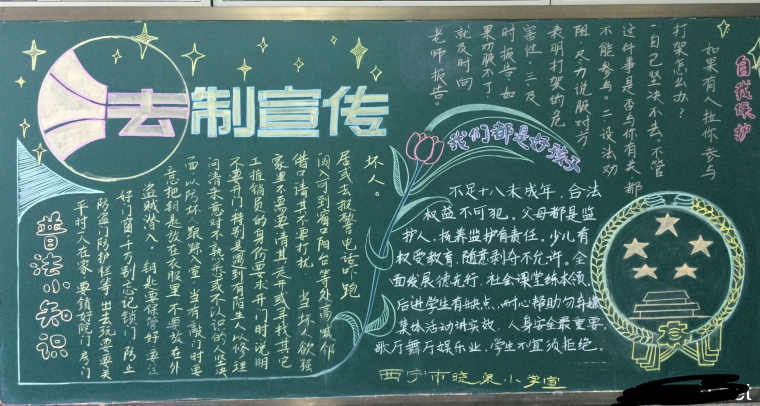 法制宣传
普法小知识
平时一人在家，要锁好院门、房门
防盗门防护栏等 出去玩要关
好门窗千万别忘记锁门 防止
盗贼潜入。钥匙要保管好 要注
意把钥匙放在衣服里 不要放在外
面以防坏人跟踪入室。当有敲门时要
问清来意对不熟悉或不认识的人坚决
不要开门特别是遇到有陌生人以修理
工推销员的身份要求开门时说明
家里不需要请其走开或寻找其它
借口请其不要打扰。当坏人欲强
闯入可到窗口阳台等处高喊邻
居或去报警电话吓跑
坏人。
我们都是好孩子
不足十八未成年，合法
权益不可犯。父母都是监
护人，抚养监护有责任。少儿有
权受教育，随意剥夺不允许。全
面发展德先行，社会课堂练本领。
后进学生有缺点，耐心帮助勿弃嫌
集体活动讲实效，人身安全最重要，
歌厅舞厅娱乐业，学生不宜须拒绝。
西宁市晓泉小学宣
自我保护
如果有人拉你参与
打架怎么办？
一自己坚决不去。不管
这件事是否与你有关都
不能参与。二设法劝
阻，尽力说服对方
表明打架的危
害性。三、及
时报告，如
果劝服不了，
就及时向
老师报告。